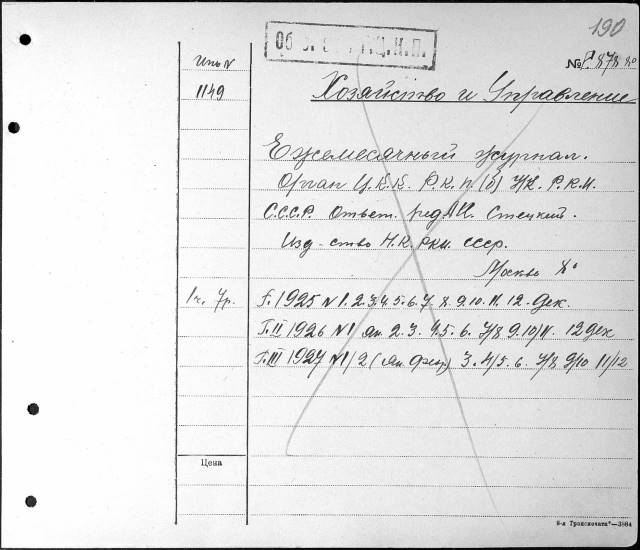 190
№ Р.878 8°
Инв N
1149
Хозяйство и Управление
Ежемесячный журнал.
Орган Ц.К.К. Р.К.П.(б) Р.К.И.
С.С.С.Р. Ответ. ред. Стецкий.
Изд-ство Н.К. РКИ. СССР.
Москва 8°
1ч. 7р. 1925 N 1. 2. 3. 4. 5. 6. 7. 8. 9. 10. 11. 12. дек.
Г.II 1926 N 1 ян. 2. 3. 4. 5. 6. 7/8 9. 10/11. 12 дек
Г.III 1927 N 1/2 (ян. фев) 3. 4/5. 6. 7/8 9/10 11/12
Цена
"—3884